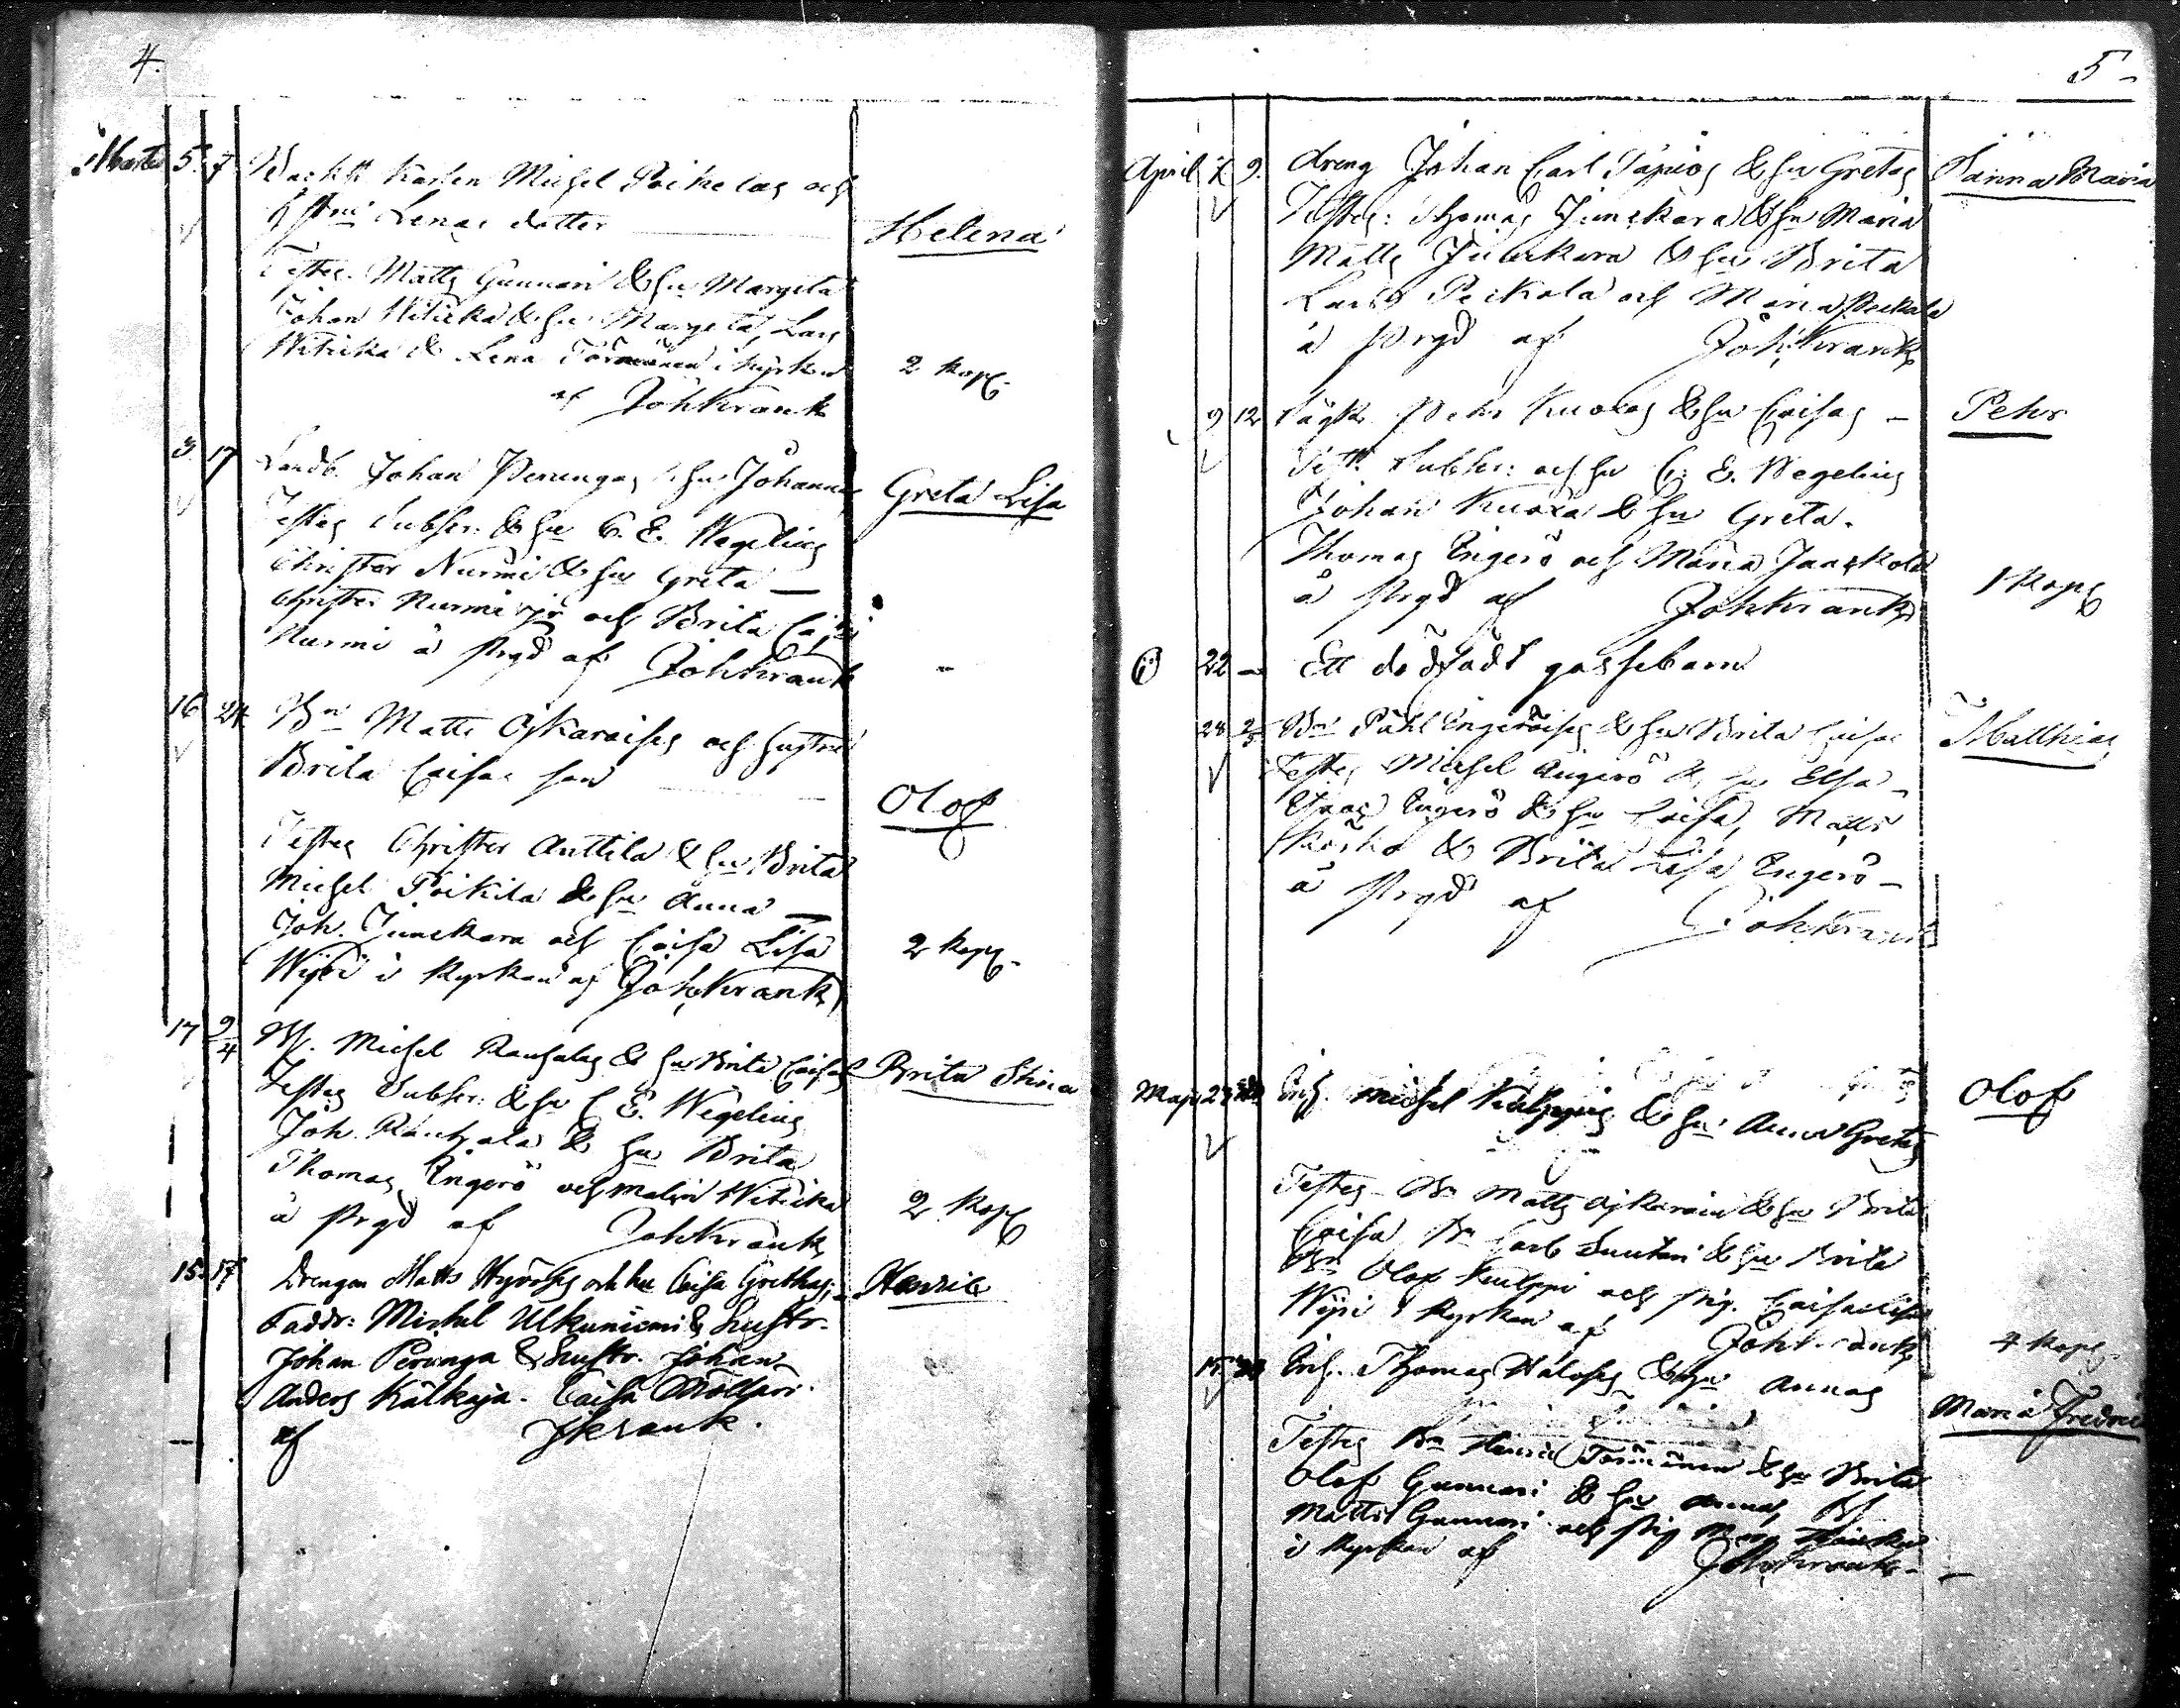 4.
Martii 5. 7 Michel Poikelas och
Lenas dotter
Helena
Testes. Matts Gunnari & hu Margeta
Johan Witicka & hu Margeta, Lars
Witicka & Lena Törmänen i kyrkan
2 kop.
af Joh Krank
3. 17 Landb. Johan Perungas & hu Johannas
Greta Lisa
Testes Subscr. & hu C. E. Wegelius
Christer Nurmi & hu Greta —
Christer Nurmi jr och Brita Caisa
Nurmi å Prgd af Joh Krank
16 24 Bn Matts Ajkaraises och hustru
Brita Caisas son
Olof
Testes Christer Anttila & hu Brita
Michel Poikila & hu Anna —
Joh. Junckara och Caisa Lisa
2 kop.
Wijri i Kyrkan af Joh. Krank
17 9/4 Michel Rauhalas & hu Brita Caisas
Brita Stina
Testes Subscr. & hu C. E. Wegelius
Joh. Rauhala & hu Brita
Thomas Engerö och Malin Witicka
2 kop
å Prgd af Joh Krank
15. 17 Drengen Matts och hu Caisa Grethas,
Henric
Faddr: Michel Ulkuniemi & hustr.
Johan Perunga & hustr. Johan-
Anders Kälkäjä. Caisa
af JKrank.
5
April 7. 9. dreng Johan Carl Tapios & hu Gretas
Sanna Maria
Testes: Thomas Junckara & hu Maria
Matts Junckara & hu Brita
Lars Peikola och Maria Peikola
å Prgd af Joh: Krank
9 12 Pehr Kuoxas & hu Caisas —
Pehr
Test. Subscr: och hu C. E. Wegelius
Johan Kuoxa & hu Greta.
Thomas Engerö och Maria Jaaskola
1 kop
å Prgd af Joh Krank
22 — Ett dödfödt gossebarn
28 2/5 Bn Påhl Engeröises & hu Brita Caisas
Matthias
Testes Michel Ångerö & hu Elsa —
Isaac Engerö & hu Caisa, Matts
& Brita Lisa Engerö —
å Prgd af Joh Krank
Maji 23 Michel Kulppis & hu Anna Gretas
Olof
Testes — Bn Matts Ajkarain & hu Brita
Caisa, Bn Carl Suutari & hu Brita
Bn Olof Kulppi och pig. Caisa Lisa
Wijri i Kyrkan af Joh Krank
4 kop.
15. Thomas Haloses & hu Annas
Maria Fredrica
Testes Bn Henric Törmänen & hu Brita
Olof Gunnari & hu Anna,
Matts Gunnari och pig
i Kyrkan af Joh Krank —